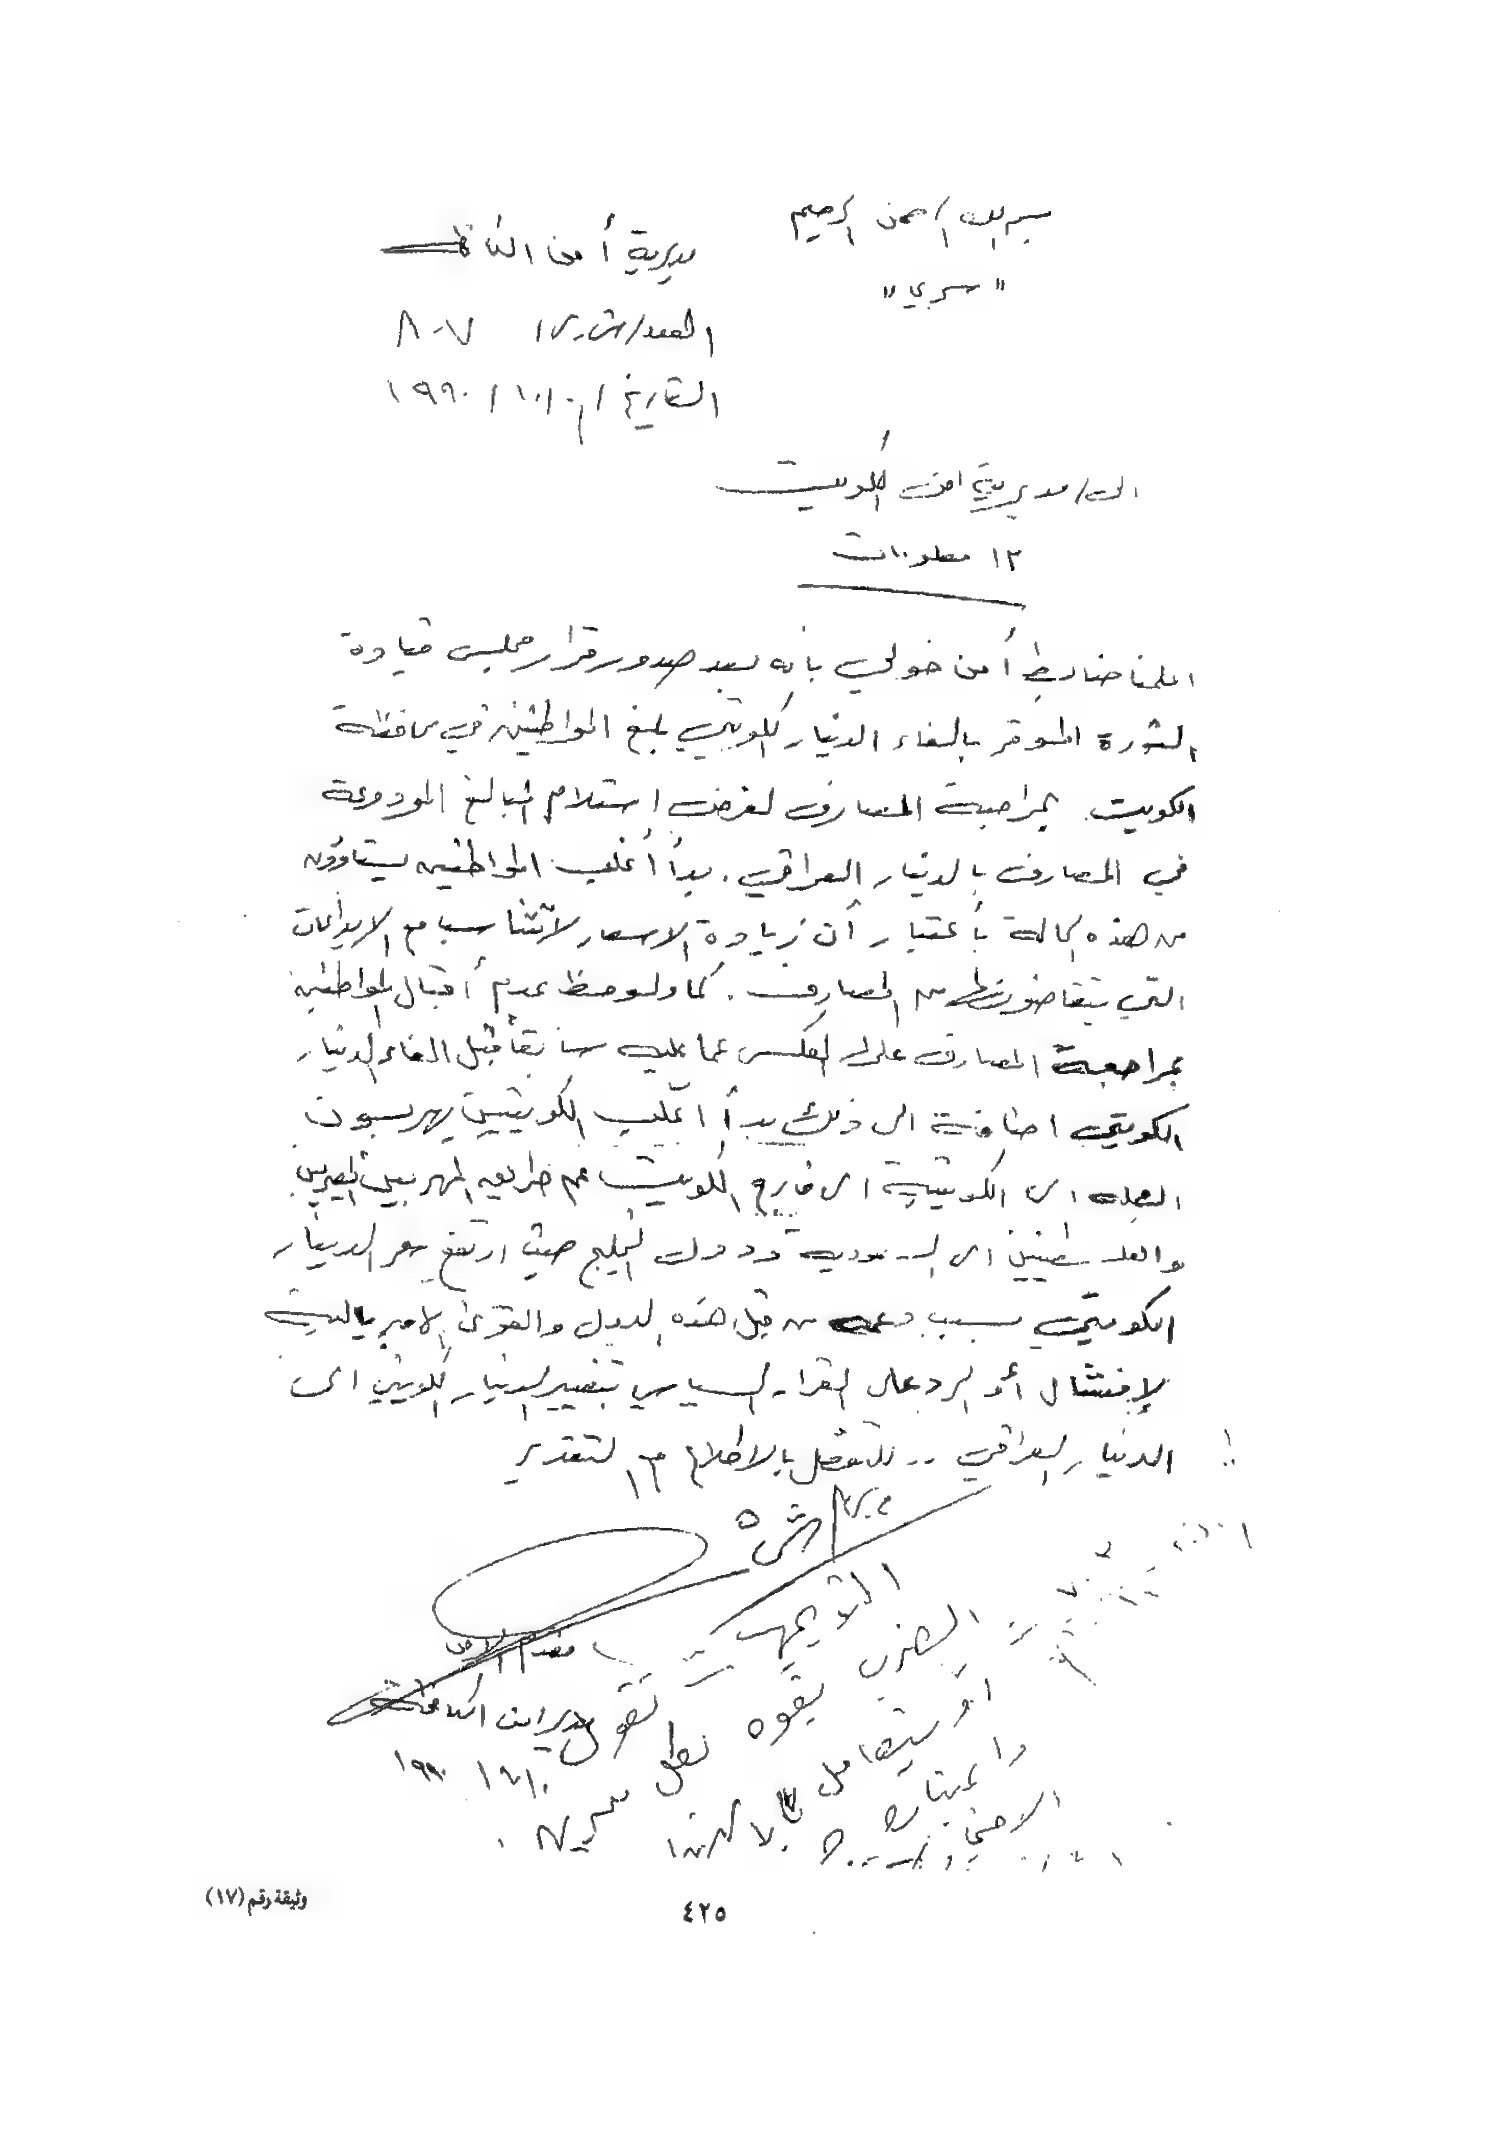 بسم الله الرحمن الرحيم
"سري"
مديرية أمن
العدد/ش.س/ ٨٠٧
التاريخ / /١٠/ ١٩٩٠
الى/ مديرية امن الكويت
م/ معلومات
اعلمنا ضابط أمن خولي بأنه بعد صدور قرار مجلس قيادة
الثورة الموقر بالغاء الدينار الكويتي بلغ المواطنين في محافظة
الكويت بمراجعة المصارف لغرض استلام المبالغ المودوعة
في المصارف بالدينار العراقي. بدأ أغلب المواطنين يستاؤون
من هذه الحالة بأعتبار أن زيادة الاسعار لا تتناسب مع الايداعات
التي يتقاضونها من المصارف. كما ولوحظ عدم أقبال المواطنين
بمراجعة المصارف على العكس عما عليه سابقاً قبل الغاء الدينار
الكويتي اضافة الى ذلك بدأ اغلب الكويتيين يهربون
العمله الكويتية الى خارج الكويت عن طريق المهربين المصريين
والفلسطينين الى السعودية ودول الخليج حيث ارتفع سعر الدينار
الكويتي بسبب دعمه من قبل هذه الدول والقوى الامبريالية
لإفشال أو الرد على القرار السياسي بتغيير الدينار الكويتي الى
الدينار العراقي .. للتفضل بالاطلاع مع التقدير
مقدم الامن
مدير امن
١٩٩٠
الضرب بقوه
يتعامل
واعتباره
وثيقة رقم (١٧)
٤٢٥